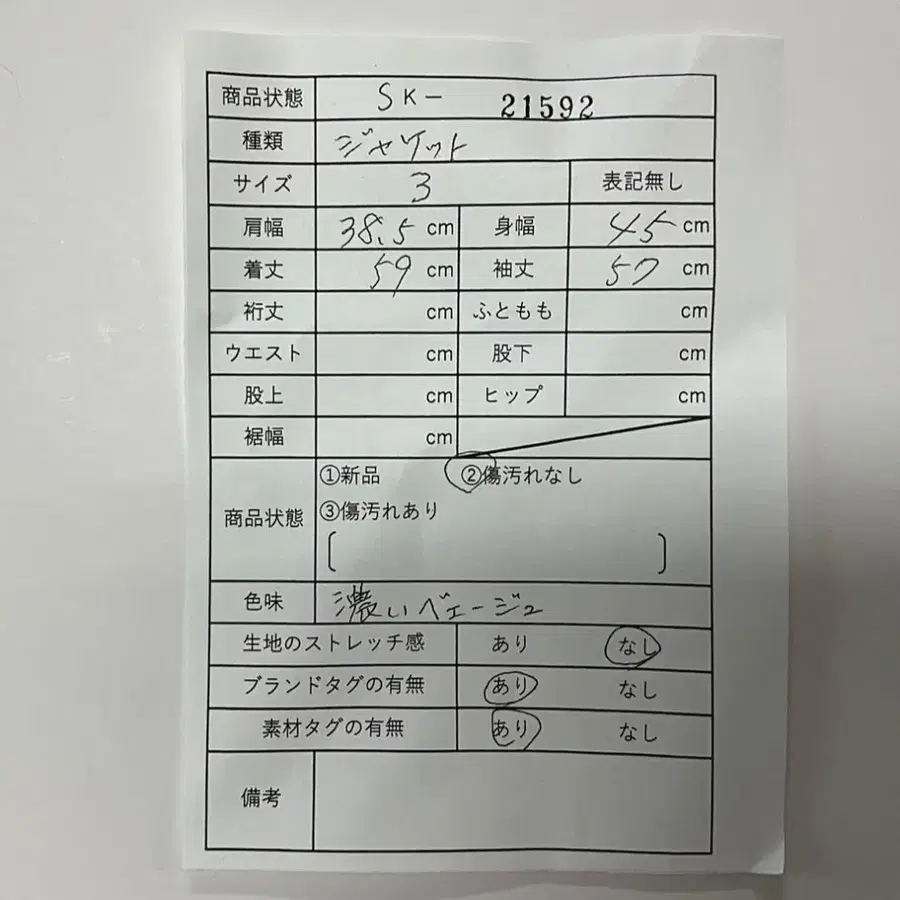 商品状態 SK- 21592
種類 ジャケット
サイズ 3 表記無し
肩幅 38.5 cm 身幅 45 cm
着丈 59 cm 袖丈 57 cm
裄丈 cm ふともも cm
ウエスト cm 股下 cm
股上 cm ヒップ cm
裾幅 cm
商品状態 ①新品 ②傷汚れなし
③傷汚れあり
[ ]
色味 濃いベージュ
生地のストレッチ感 あり なし
ブランドタグの有無 あり なし
素材タグの有無 あり なし
備考